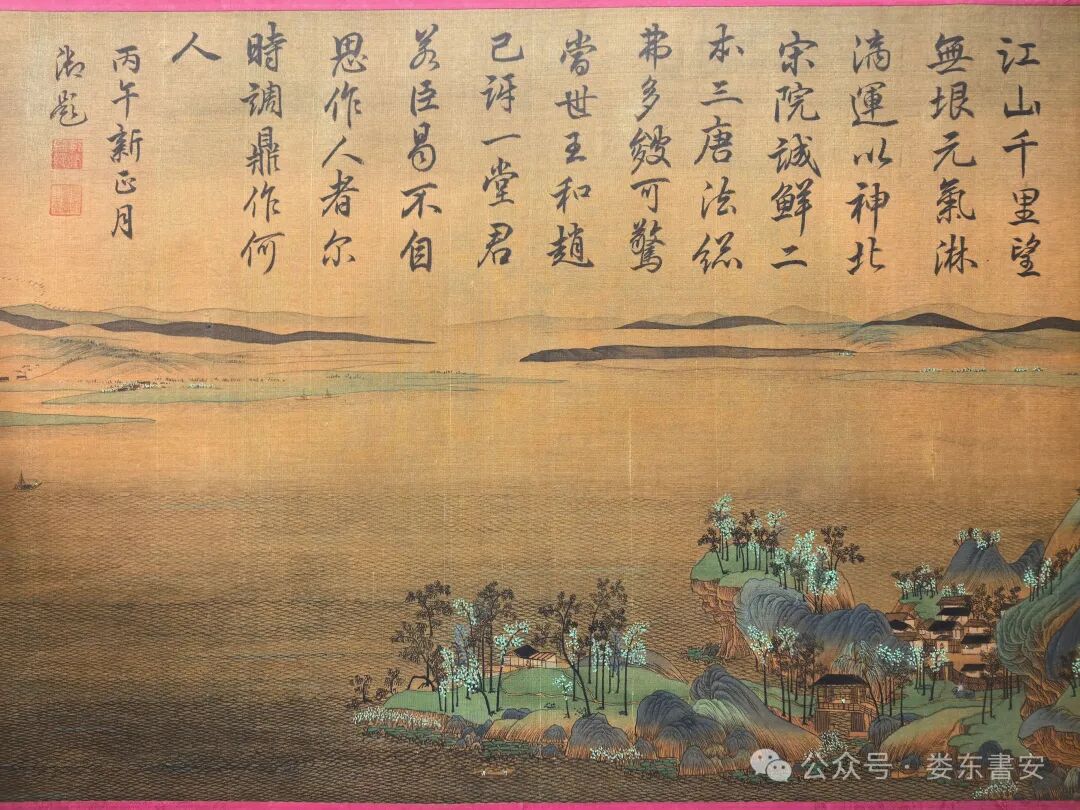 江山千里望
無垠元氣淋
漓運以神北
宋院誠鮮二
本三唐法総
弗多皴可驚
當世王和趙
已訝一堂君
若臣曷不自
思作人者尔
時調鼎作何
人
丙午新正月
御題
公众号·娄东書安